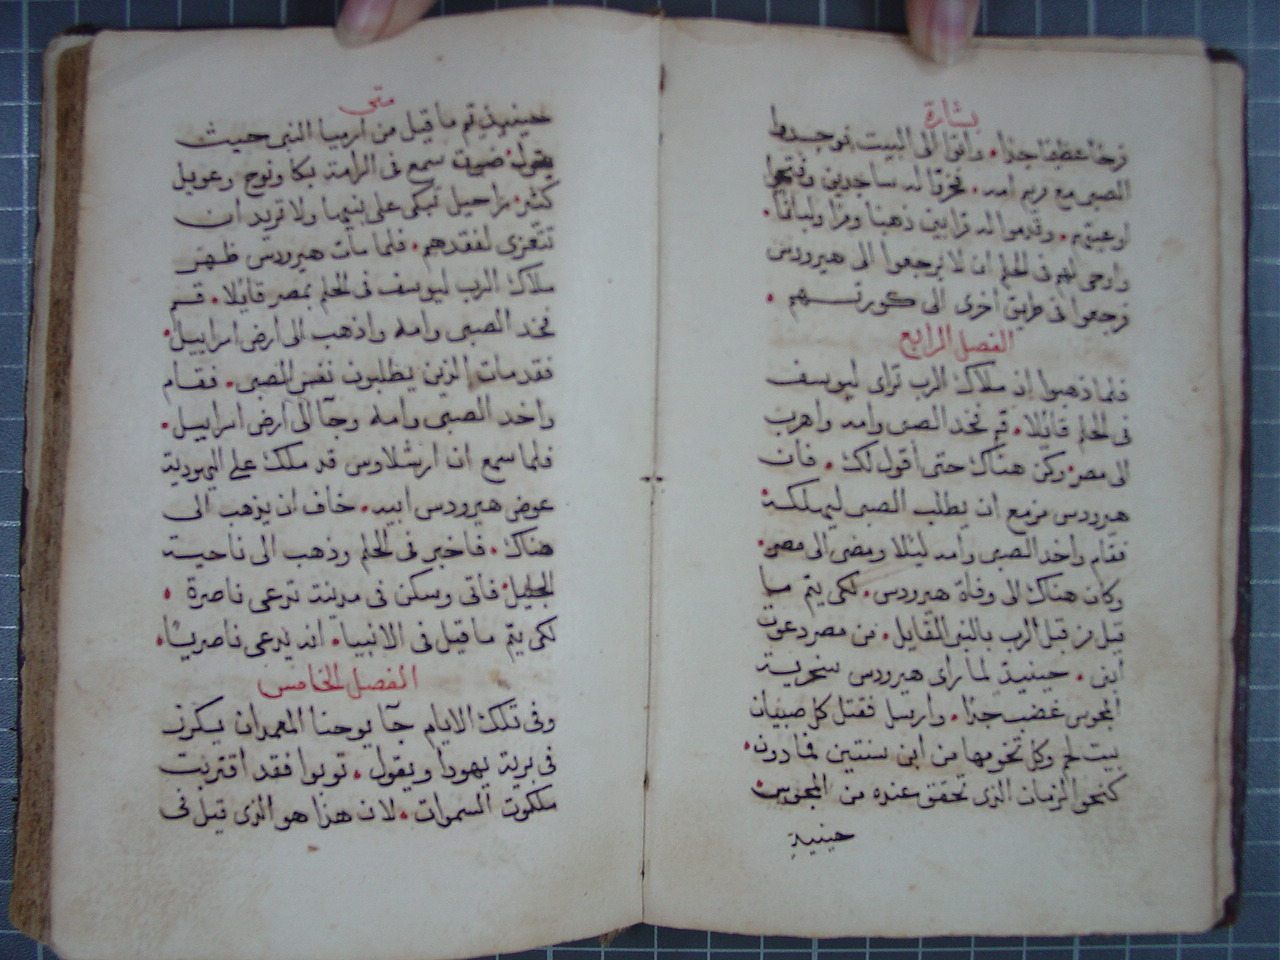 بشارة
فرحا عظيما جدا. واتوا الى البيت فوجدوا
الصبى مع مريم امه. فخروا له ساجدين وفتحوا
اوعيتهم. وقدموا له قرابين ذهبا ومرا ولبانا.
واوحى لهم فى الحلم ان لا يرجعوا الى هيرودس
فرجعوا فى طريق اخرى الى كورتهم.
الفصل الرابع
فلما ذهبوا اذ ملاك الرب تراى ليوسف
فى الحلم قايلا. قم فخد الصبى وامه واهرب
الى مصر وكن هناك حتى اقول لك. فان
هيرودس مزمع ان يطلب الصبى ليهلكه
فقام واخد الصبى وامه ليلا ومضى الى مصر.
وكان هناك الى وفاة هيرودس. لكى يتم ما
قيل من قبل الرب بالنبى القايل. من مصر دعوت
ابنى. حينيذ لما راى هيرودس سخرية
المجوس غضب جدا. وارسل فقتل كل صبيان
بيت لحم وكل تخومها من ابن سنتين فما دون.
كنحو الزمان الذى تحقق عنده من المجوس
حينيذ
متى
حينيذ تم ما قيل من ارميا النبى حيث
يقول. صوت سمع فى الرامة بكا ونوح وعويل
كثير. راحيل تبكى على بنيها ولا تريد ان
تتعزى لفقدهم. فلما مات هيرودس ظهر
ملاك الرب ليوسف فى الحلم بمصر قايلا. قم
فخد الصبى وامه واذهب الى ارض اسراييل.
فقد مات الذين يطلبون نفس الصبى. فقام
واخد الصبى وامه وجا الى ارض اسراييل.
فلما سمع ان ارشلاوس قد ملك على اليهودية
عوض هيرودس ابيه. خاف ان يذهب الى
هناك. فاخبر فى الحلم وذهب الى ناحية
الجليل. فاتى وسكن فى مدينة تدعى ناصرة.
لكى يتم ما قيل فى الانبيا. انه يدعى ناصريا.
الفصل الخامس
وفى تلك الايام جا يوحنا المعمدان يكرز
فى برية يهودا ويقول. توبوا فقد اقتربت
ملكوت السموات. لان هذا هو الذى قيل فى